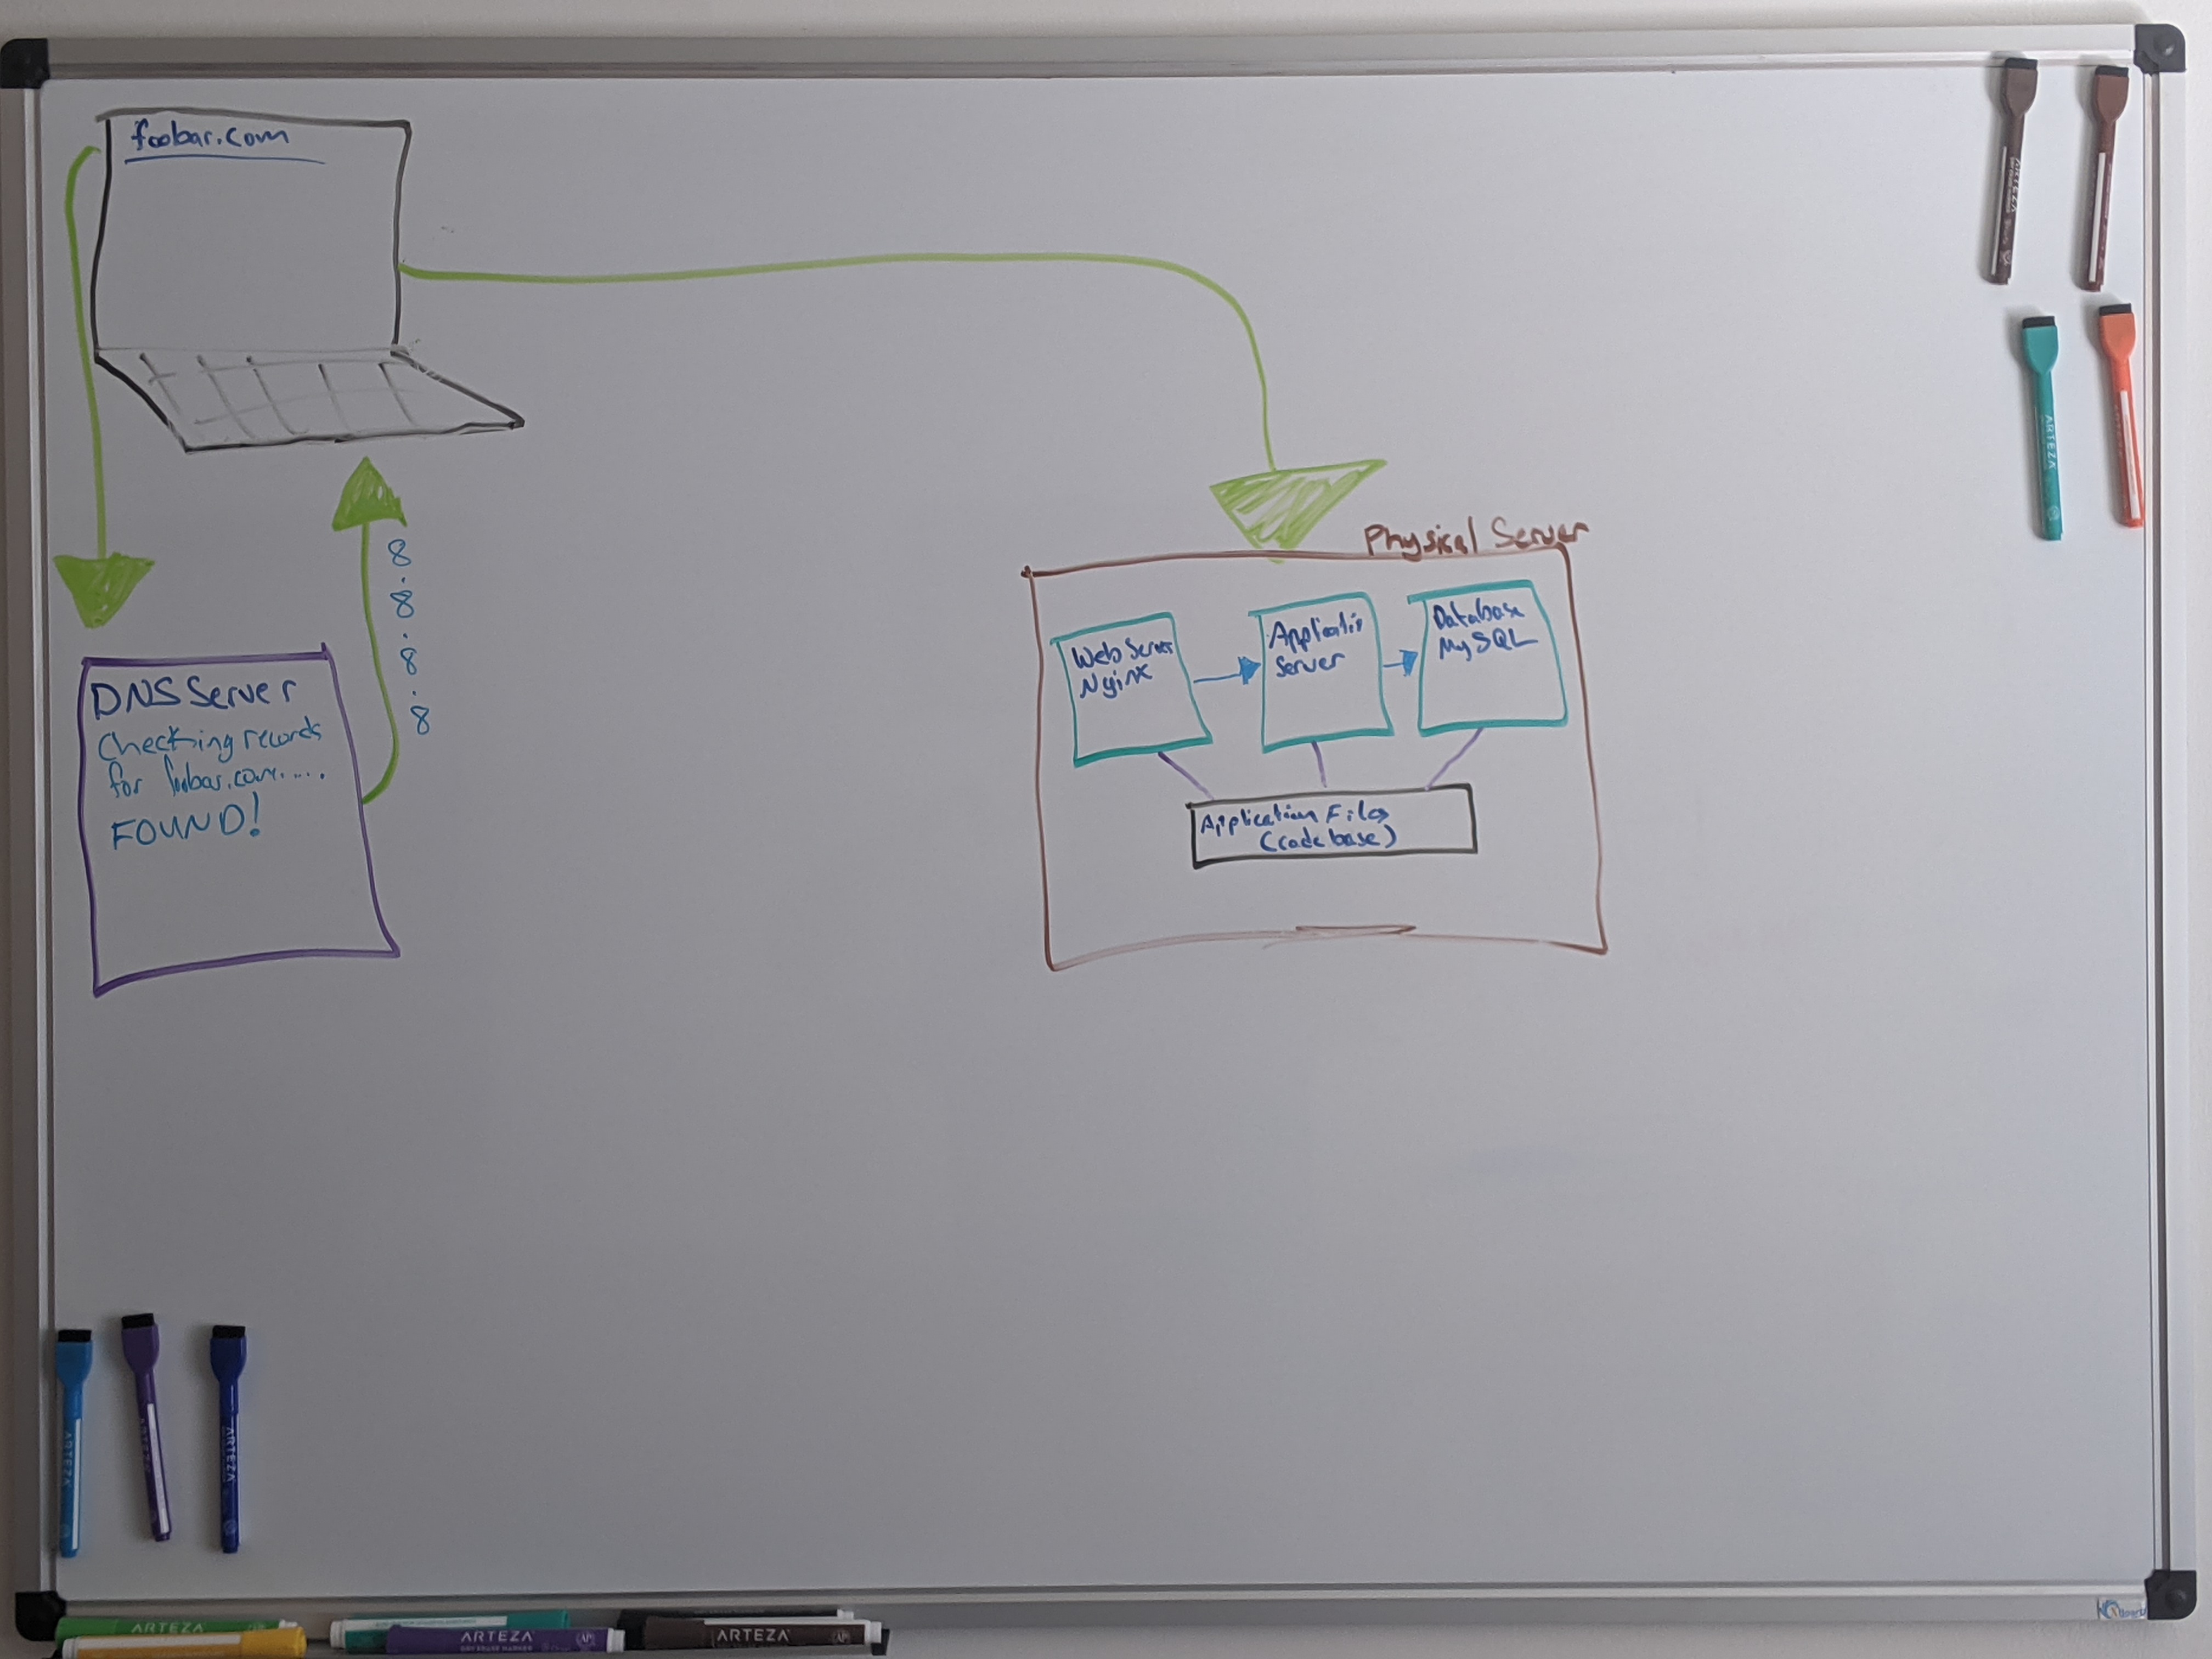 foobar.com
8.8.8.8
DNS Server
Checking records
for foobar.com.....
FOUND!
Physical Server
Web Server
Nginx
Applicatio
Server
Database
MySQL
Application Files
(codebase)
ARTEZA
ARTEZA
ARTEZA
ARTEZA
ARTEZA
ARTEZA
ARTEZA
ARTEZA
ARTEZA